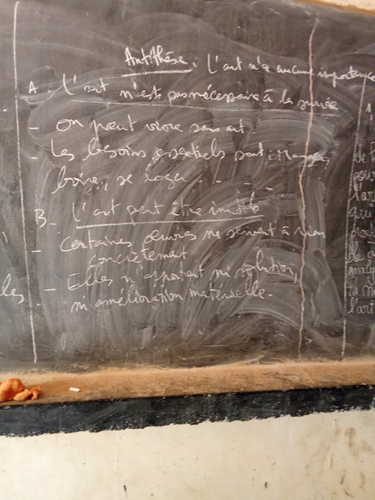 Antithèse. L'art n'a aucune importance
A. L'art n'est pas nécessaire à la survie
- On peut vivre sans art.
- Les besoins essentiels sont : Manger,
boire, se loger
B. L'art peut être inutile
- Certaines œuvres ne servent à rien
concrètement
- Elles n'apportent ni solution,
ni amélioration matérielle.
les